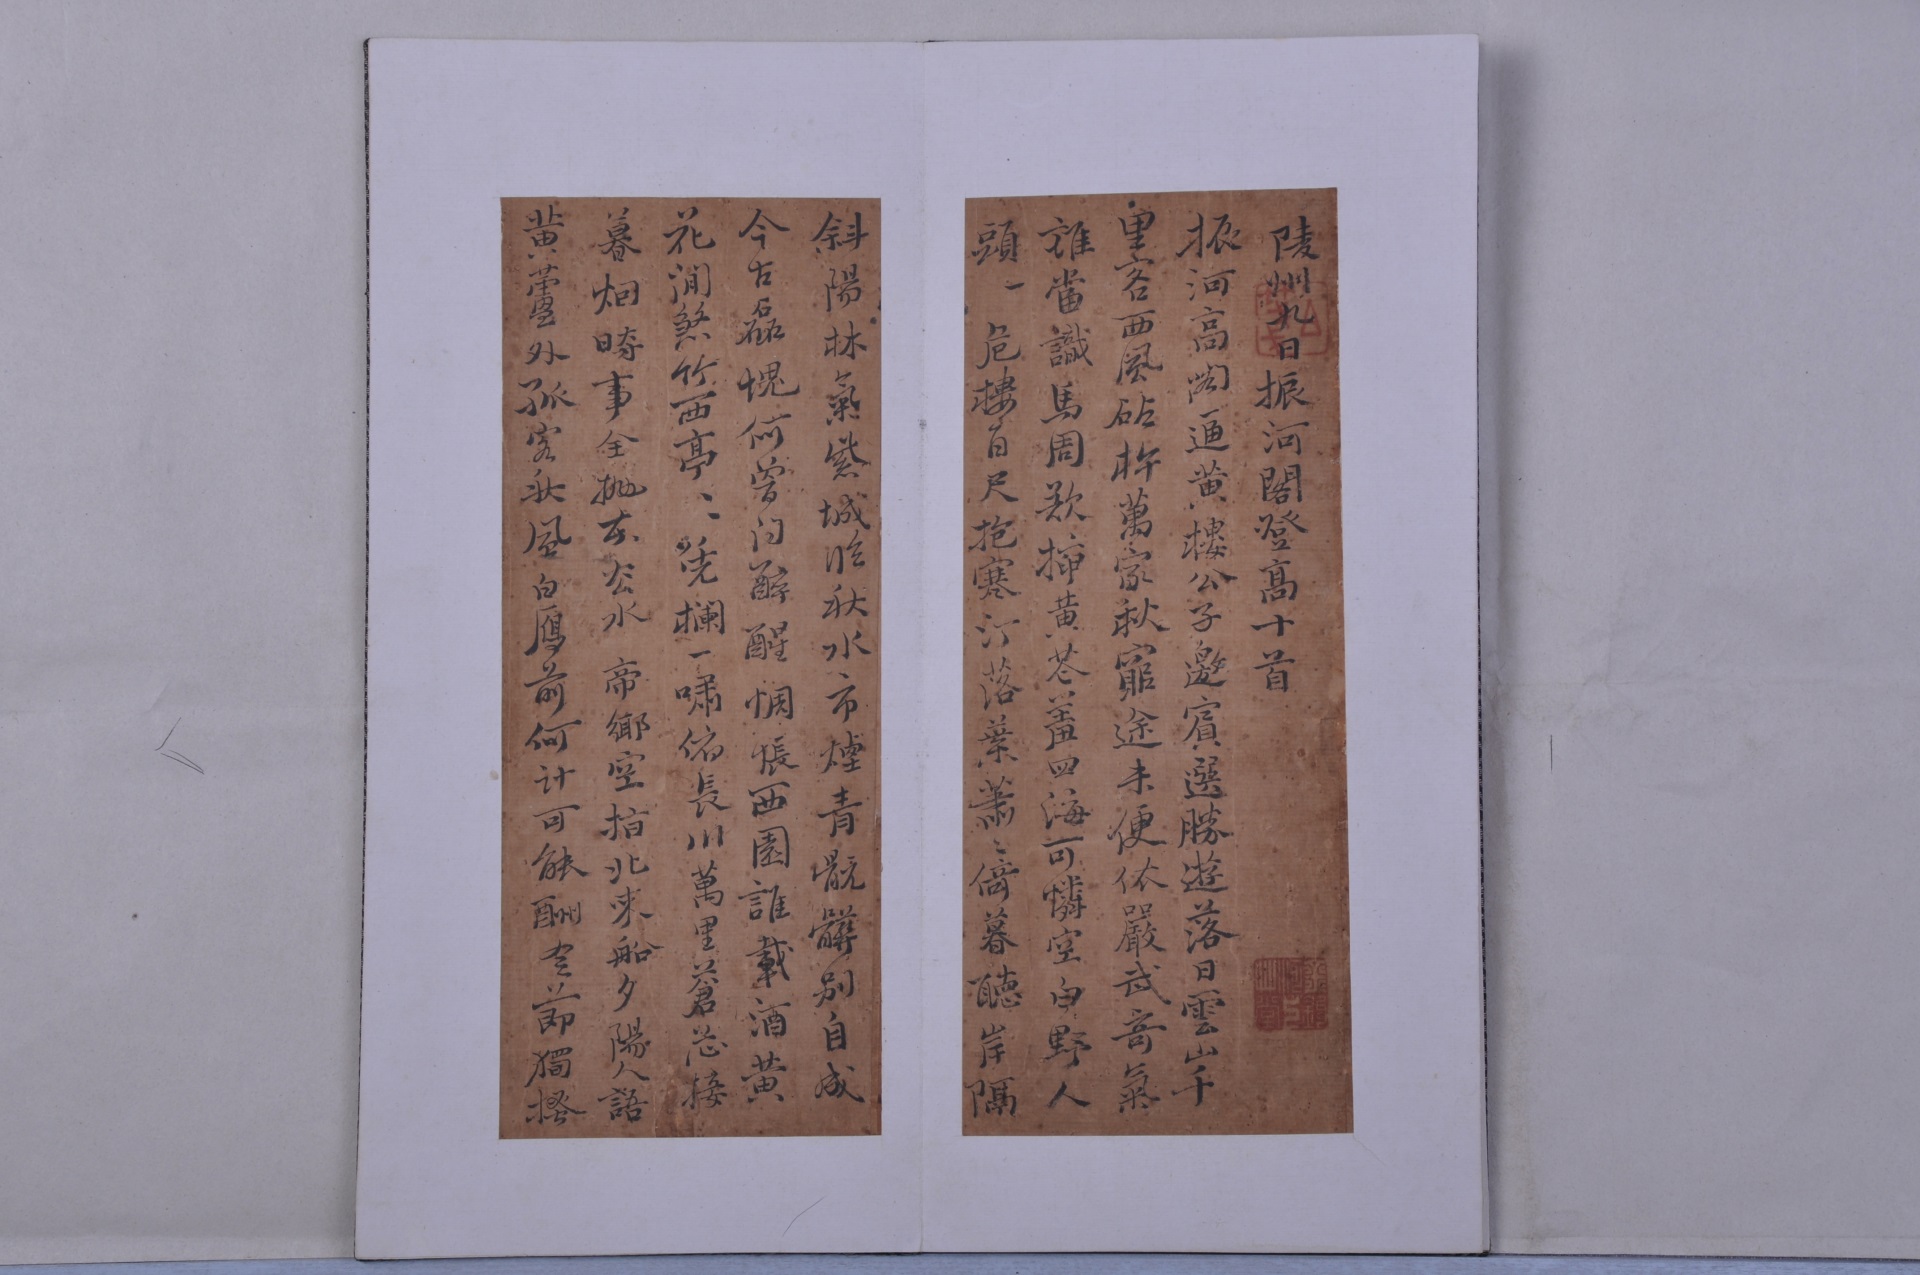 陵州九日振河閣登高十首
振河高閣通黃樓公子邀賓選勝遊落日雲山千
里客西風砧杵萬家秋窮途未便依嚴武奇氣
誰當識馬周欺插黃花羞四海可憐空白野人
頭一危樓百尺抱寒汀落葉蕭〻倚暮聽岸隔
斜陽林氣紫城臨秋水市煙青骯髒別自成
今古磊塊何曾問醉醒惆悵西園誰載酒黃
花澗煞竹西亭〻凭欄一嘯俯長川萬里蒼茫接
暮烟時事全拋東去水帝鄉空指北來船夕陽人語
黃蘆外孤客秋風白雁前何計可能酬令節獨搔